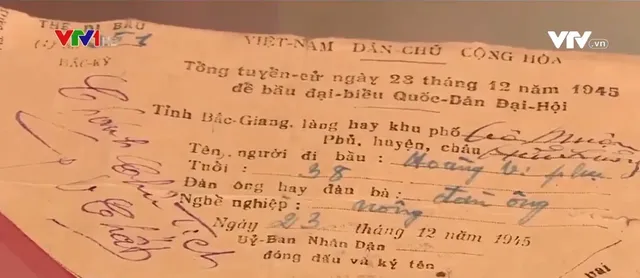 THẺ ĐI BẦU
VTV1 HD
51
BẮC-KỲ
VTV.vn
VIỆT-NAM DÂN-CHỦ CỘNG HÒA
Tổng tuyển-cử ngày 23 tháng 12 năm 1945
để bầu đại-biểu Quốc-Dân Đại-Hội
Tỉnh Bắc-Giang, làng hay khu phố
Phủ, huyện, châu
Tên, người đi bầu : Hoàng
Tuổi : 38
Đàn ông hay đàn bà : đàn ông
Nghề nghiệp : nông
Ngày 23 tháng 12 năm 1945
Uỷ-Ban Nhân Dân
đóng dấu và ký tên
Chánh Chủ Tịch